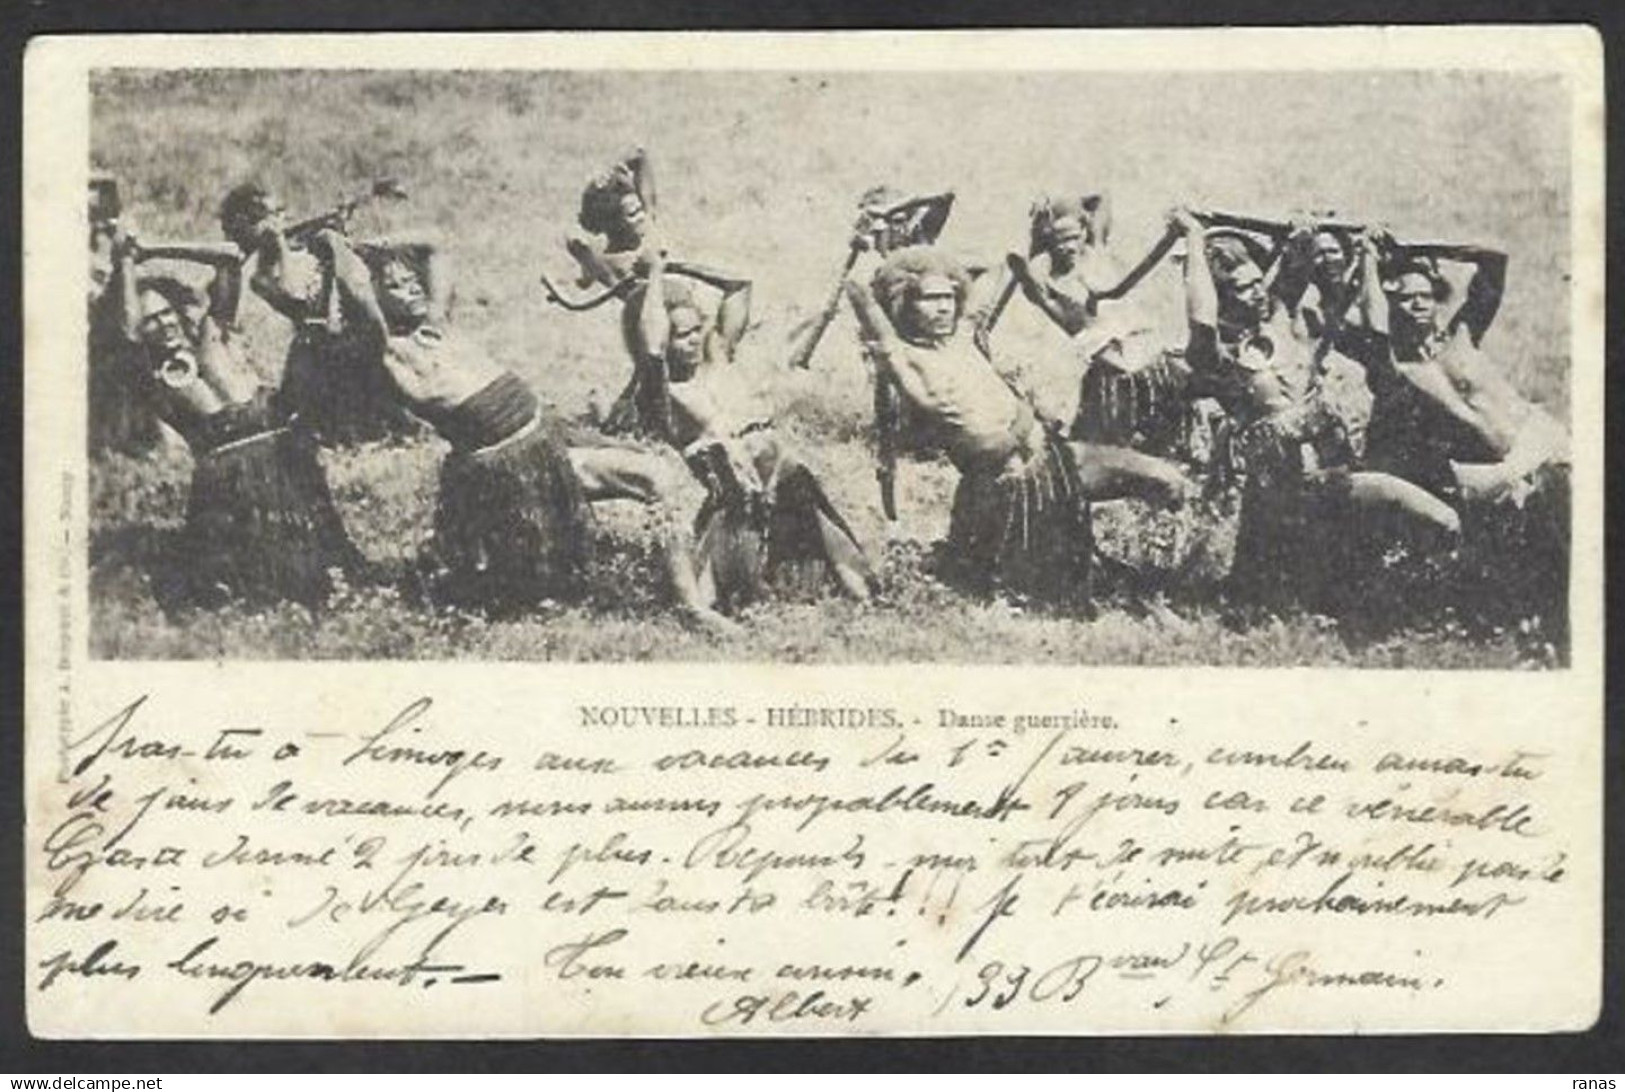 NOUVELLES - HÉBRIDES. - Danse guerrière.
Iras-tu à Limoges aux vacances du 1er Janvier, combien auras-tu
de jours de vacances, nous aurons propablement 9 jours car ce vénérable
a donné 2 jours de plus. Réponds-moi tout de suite, et n'oublie pas de
me dire si de Geyer est dans ta boîte!!! Je t'écrirai prochainement
plus longuement. - Ton vieux cousin,
Albert
, 93 Bvard St Germain.
Phototypie A. Bergeret & Cie - Nancy
www.delcampe.net
ranas